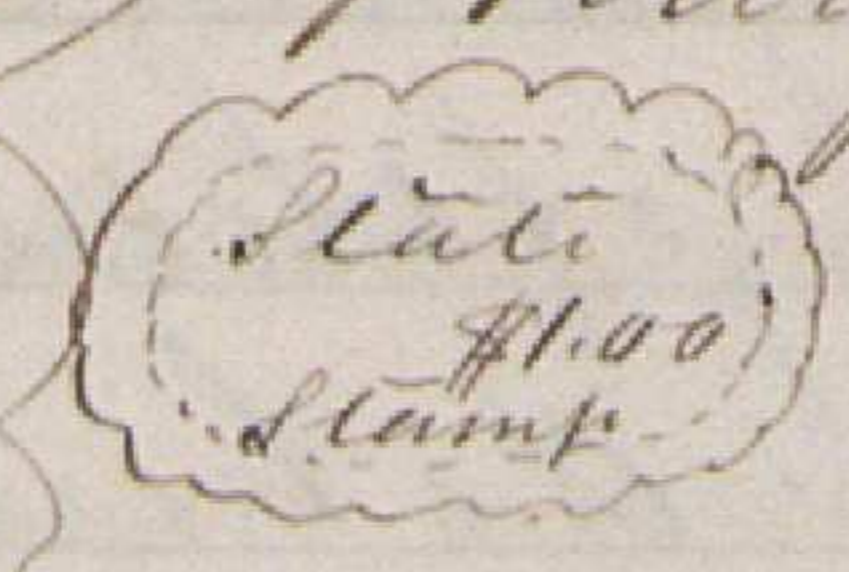 State
$1.00
Stamp